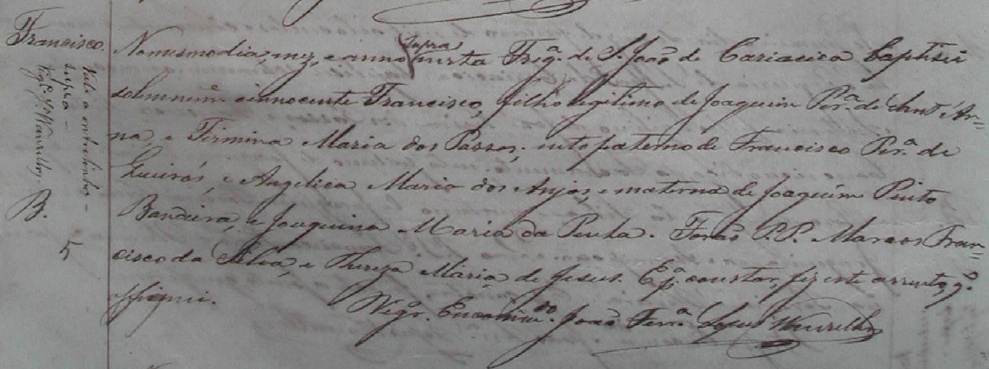 Francisco.
Vale a entrelinha -
supra -
Vigr.º Wanzeller
B.
5
No mesmo dia, mez, e anno supra nesta Frg.ª de S. João de Cariacica baptisei
solemnem.e o innocente Francisco, filho legitimo de Joaquim Per.ª de Sant'An-
na, e Firmina Maria dos Passos; neto paterno de Francisco Per.ª de
Queirós, e Angelica Maria dos Anjos, e materna de Joaquim Pinto
Bandeira, e Joaquina Maria da Penha. Forão P.P. Marcos Fran-
cisco da Silva, e Thereza Maria de Jesus. E p.ª constar, fiz este assento, q.e
assignei.
Vigr. Encommend.do João Ferr.ª Lopes Wanzeller